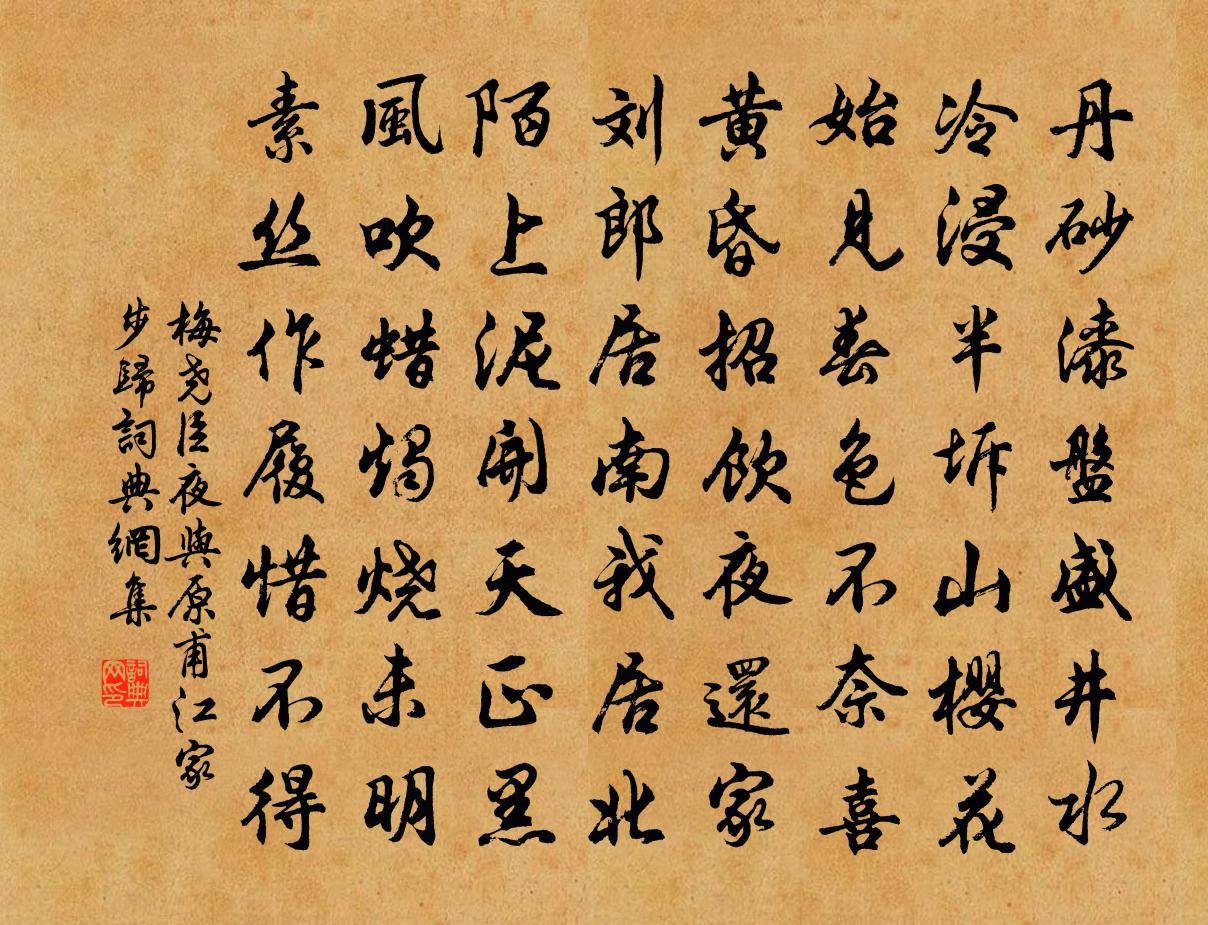 丹砂漆盤盛井水
冷浸半坼山櫻花
始見春色不奈喜
黄昏招飲夜還家
刘郎居南我居北
陌上泥開天正黑
風吹蜡燭烧未明
素丝作履惜不得
梅尧臣夜與原甫江家
步歸詞典網集
詞典网印